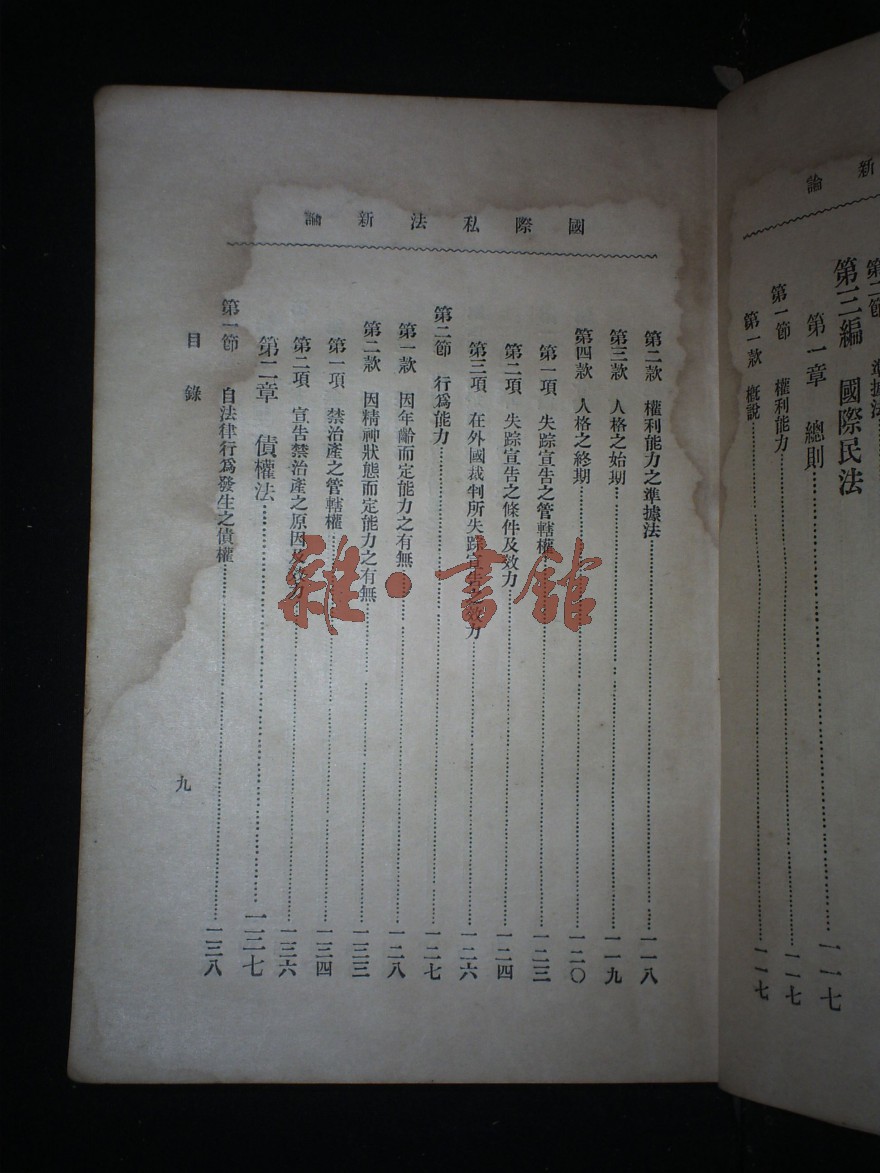 新論
第二節 準據法
第三編 國際民法
第一章 總則……一一七
第一節 權利能力……一一七
第一款 概說……一一七
國際私法新論
第二款 權利能力之準據法……一一八
第三款 人格之始期……一一九
第四款 人格之終期……一二〇
第一項 失踪宣告之管轄權……一二三
第二項 失踪宣告之條件及效力……一二四
第三項 在外國裁判所失踪宣告之效力……一二六
第二節 行爲能力……一二七
第一款 因年齡而定能力之有無……一二八
第二款 因精神狀態而定能力之有無……一三三
第一項 禁治產之管轄權……一三四
第二項 宣告禁治產之原因及效力……一三六
第二章 債權法……一三七
第一節 自法律行爲發生之債權……一三八
目錄
九
雜·書館